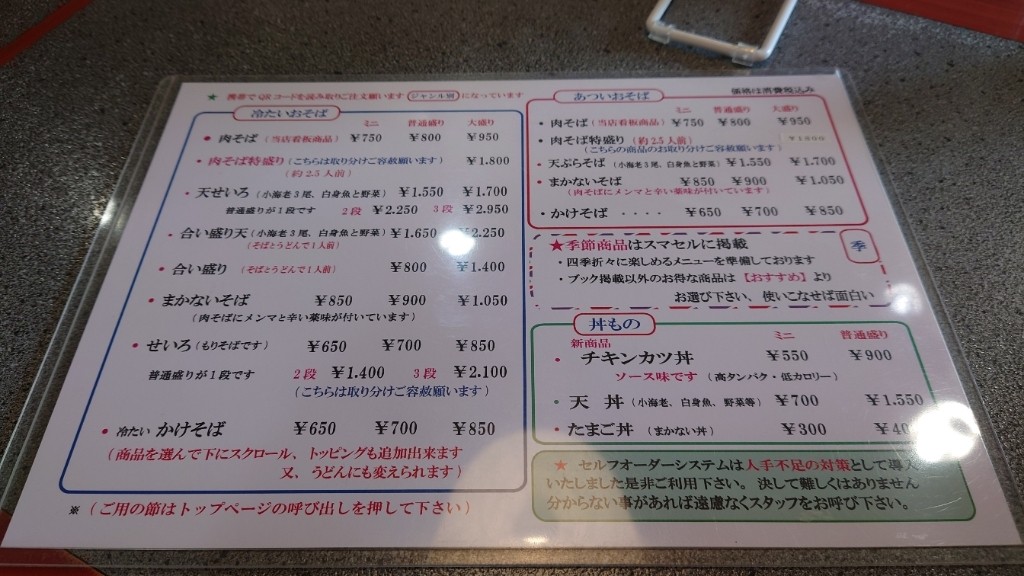 ★ 携帯でQRコードを読み取りご注文願います ジャンル別 になっています
冷たいおそば
ミニ 普通盛り 大盛り
・肉そば (当店看板商品) ¥750 ¥800 ¥950
・肉そば特盛り (こちらは取り分けご容赦願います) ¥1.800
(約2.5人前)
・天せいろ (小海老3尾、白身魚と野菜) ¥1.550 ¥1.700
普通盛りが1段です 2段 ¥2.250 3段 ¥2.950
・合い盛り天 (小海老3尾、白身魚と野菜) ¥1.650 ¥2.250
(そばとうどんで1人前)
・合い盛り (そばとうどんで1人前) ¥800 ¥1.400
・まかないそば ¥850 ¥900 ¥1.050
(肉そばにメンマと辛い薬味が付いています)
・せいろ (もりそばです) ¥650 ¥700 ¥850
普通盛りが1段です 2段 ¥1.400 3段 ¥2.100
(こちらは取り分けご容赦願います)
・冷たい かけそば ¥650 ¥700 ¥850
(商品を選んで下にスクロール、トッピングも追加出来ます
又、うどんにも変えられます)
※ (ご用の節はトップページの呼び出しを押して下さい)
価格は消費税込み
あついおそば
ミニ 普通盛り 大盛り
・肉そば (当店看板商品) ¥750 ¥800 ¥950
・肉そば特盛り (約2.5人前) ¥1800
(こちらの商品のお取り分けご容赦願います)
・天ぷらそば (小海老3尾、白身魚と野菜) ¥1.550 ¥1.700
・まかないそば ¥850 ¥900 ¥1.050
(肉そばにメンマと辛い薬味が付いています)
・かけそば ・・・・ ¥650 ¥700 ¥850
★季節商品はスマセルに掲載
季
・四季折々に楽しめるメニューを準備しております
・ブック掲載以外のお得な商品は【おすすめ】より
お選び下さい、使いこなせば面白い
丼もの
ミニ 普通盛り
新商品
・チキンカツ丼 ¥550 ¥900
ソース味です (高タンパク・低カロリー)
・天丼 (小海老、白身魚、野菜等) ¥700 ¥1.550
・たまご丼 (まかない丼) ¥300
★ セルフオーダーシステムは人手不足の対策として導入
いたしました是非ご利用下さい。決して難しくはありません
分からない事があれば遠慮なくスタッフをお呼び下さい。